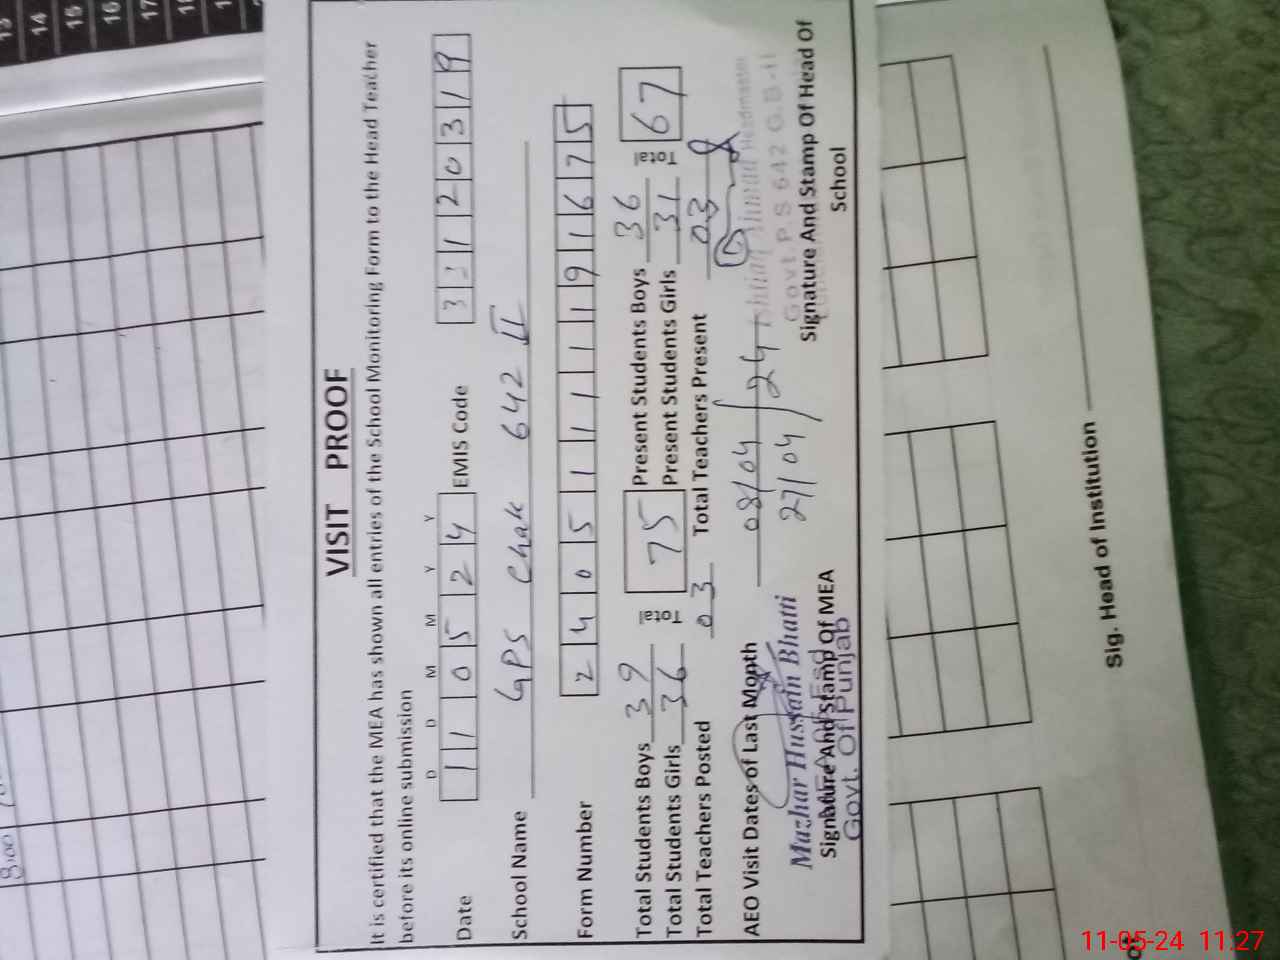 VISIT PROOF
It is certified that the MEA has shown all entries of the School Monitoring Form to the Head Teacher
before its online submission
D D M M Y Y
Date 11 05 24 EMIS Code 33120319
School Name GPS Chak 642 II
Form Number 2405111191675
Total Students Boys 39 Total 75 Present Students Boys 36 Total 67
Total Students Girls 36 Present Students Girls 31
Total Teachers Posted 03 Total Teachers Present 03
AEO Visit Dates of Last Month 08/04/24
27/04/
Mazhar Hussain Bhatti
Signature And Stamp Of MEA
Govt. Of Punjab
Ahmad Headmaster
Govt. P.S 642 G.B-II
Signature And Stamp Of Head Of
School
Sig. Head of Institution
8:00
13
14
15
16
17
11-05-24 11:27